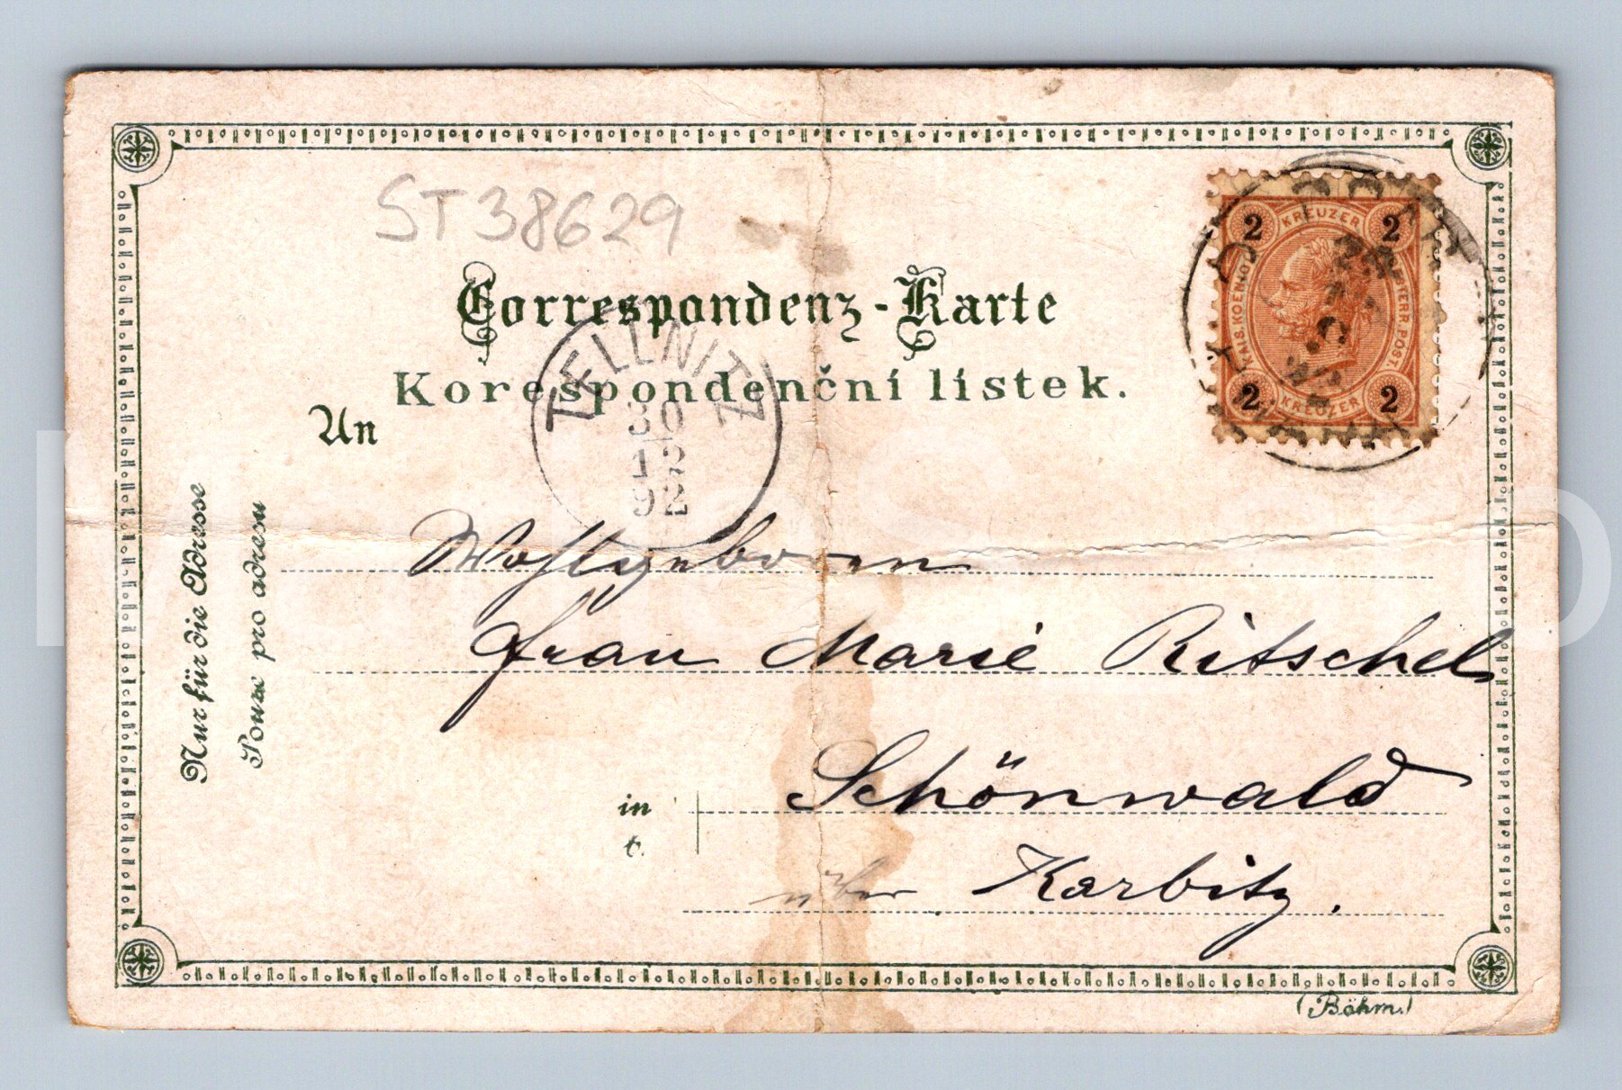 ST38629
Correspondenz-Karte
Korespondenční lístek.
An
TELLNITZ
30
12
92
2 KREUZER 2
KAIS. KOEN. OESTERR. POST.
2 KREUZER 2
Nur für die Adresse
Pouze pro adresu
Wohlgeboren
Frau Marie Ritschel
in
t.
Schönwald
über Karbitz.
(Böhm.)